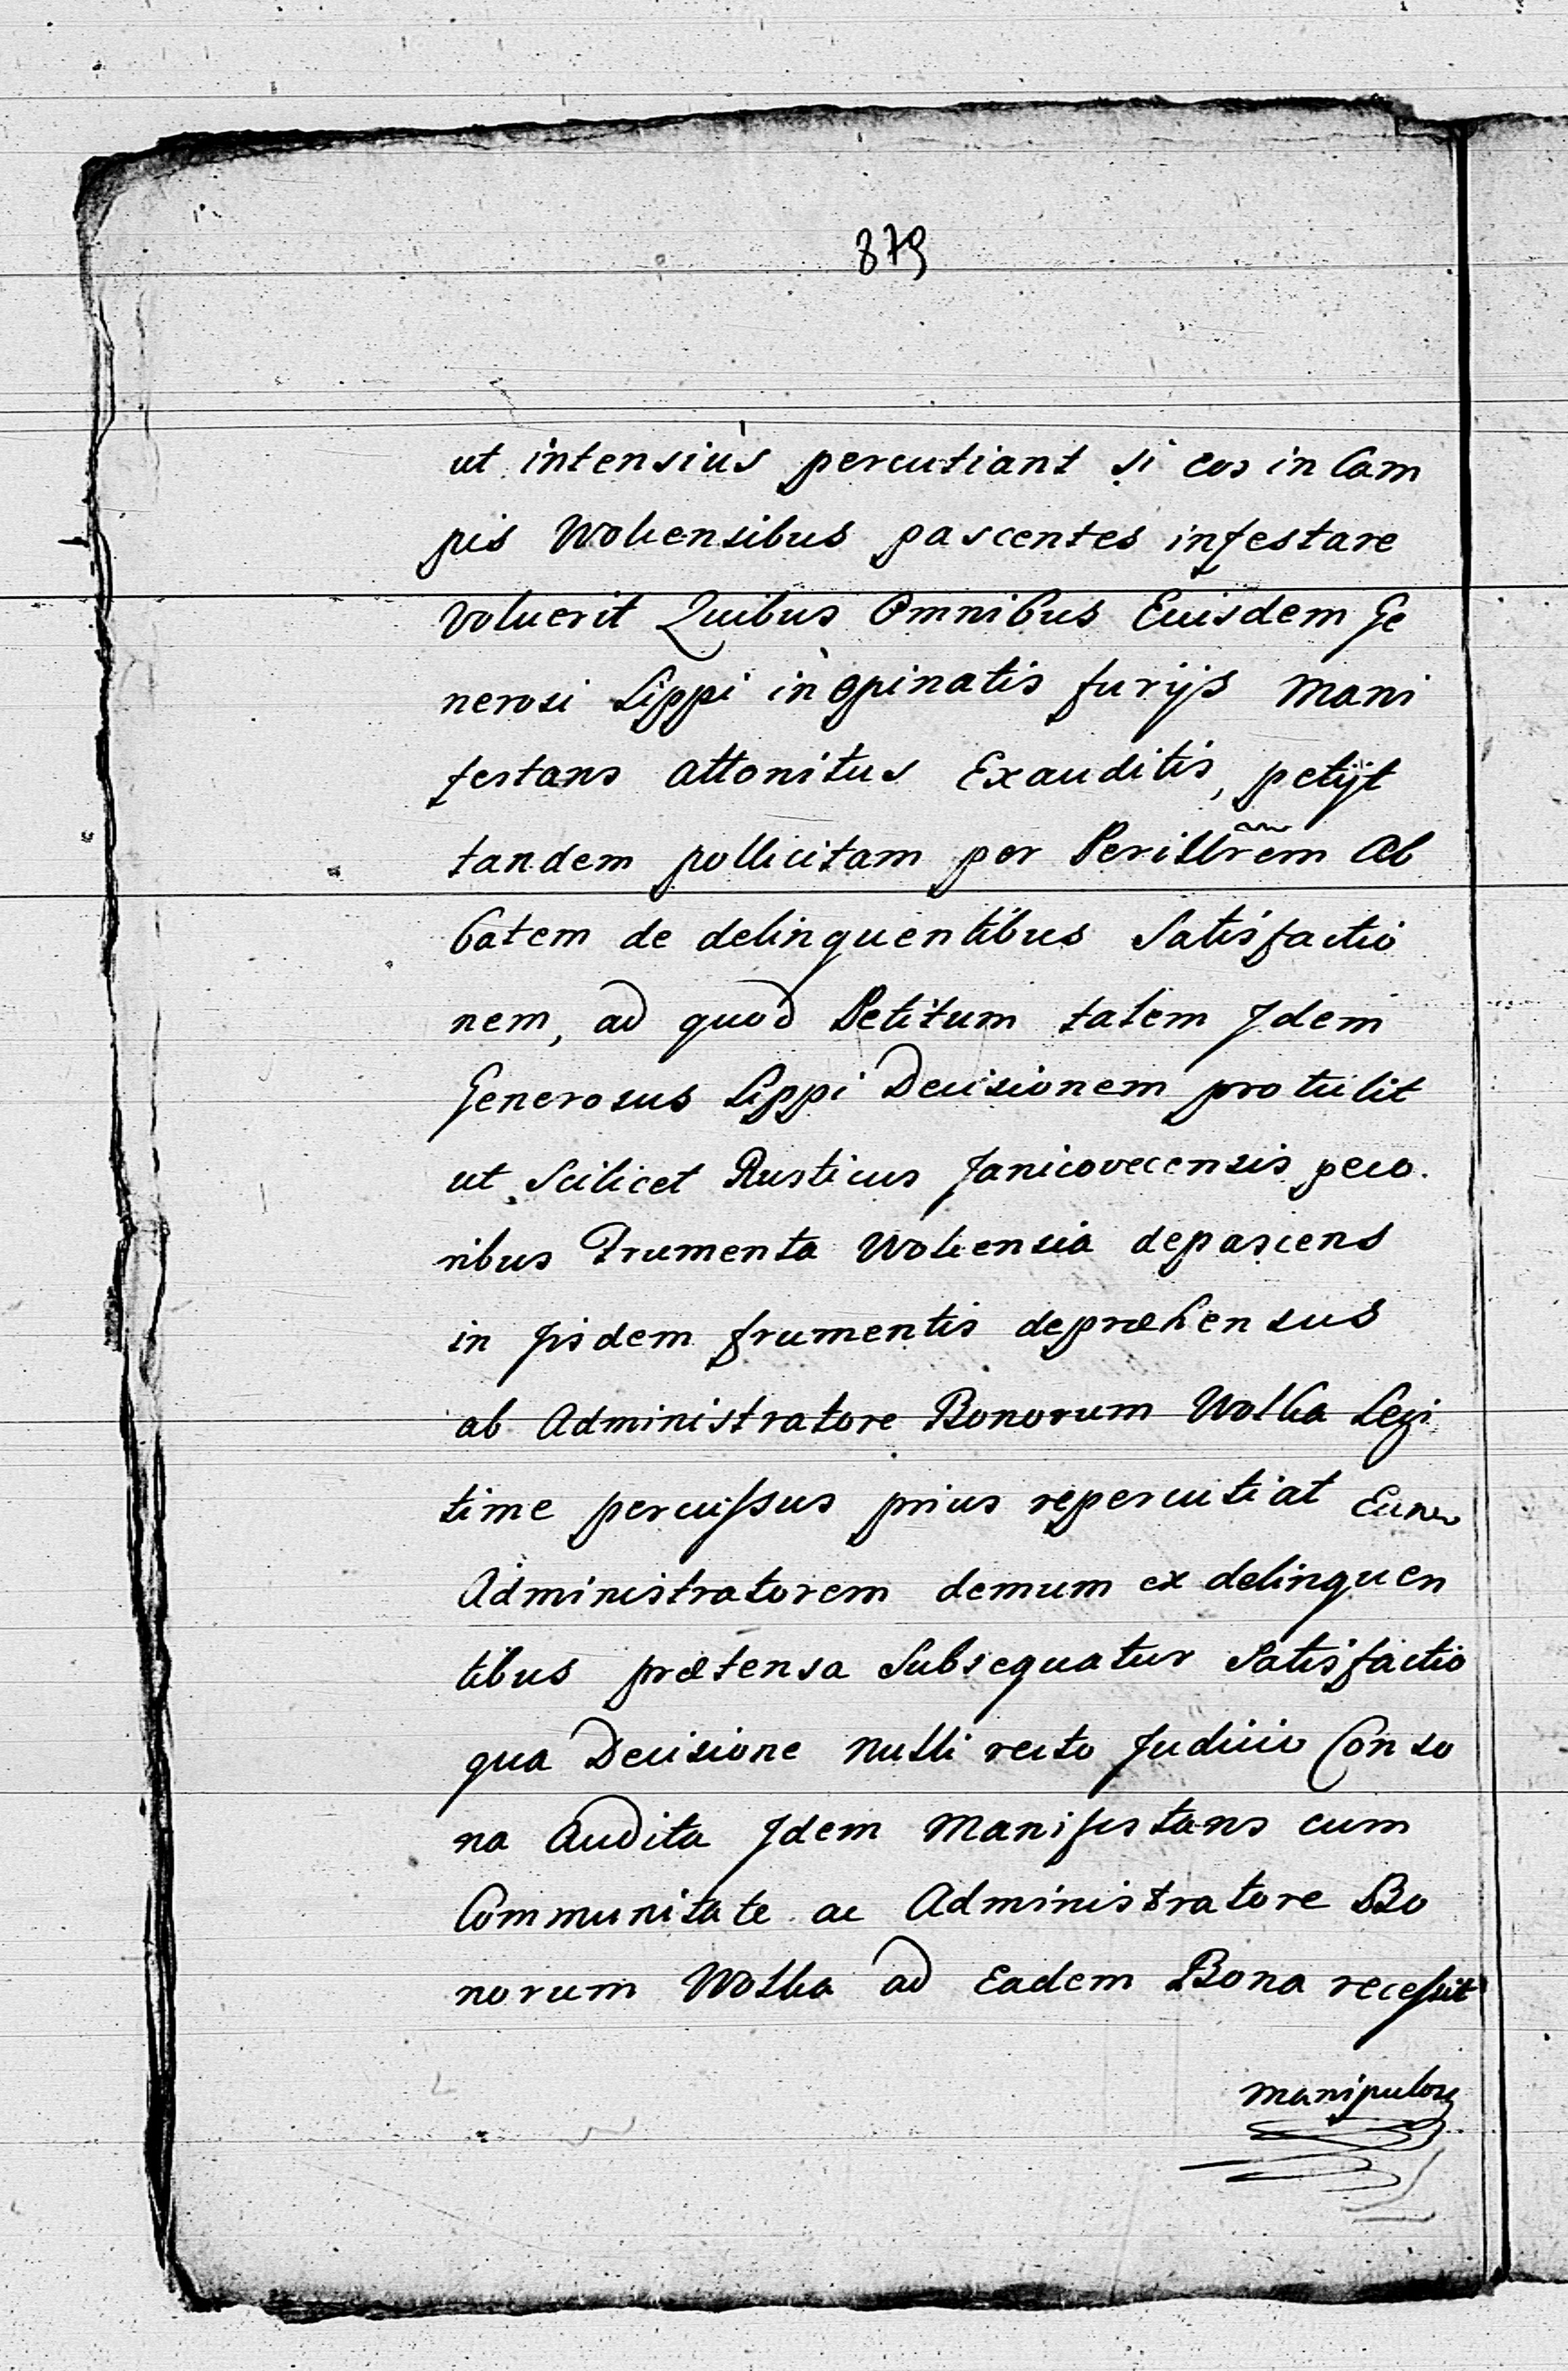 879
ut intensius percutiant si eos in Cam
pis Woliensibus pascentes infestare
voluerit Quibus Omnibus Euisdem Ge
nerosi Lippi inopinatis furijs Mani
festans attonitus Exauditis, petijt
tandem pollicitam per Perillrem Ab
batem de delinquentibus Satisfactio
nem, ad quod Petitum talem Idem
Generosus Lippi Decisionem protulit
ut Scilicet Rusticus Janicovecensis peco.
ribus Frumenta Woliensia depascens
in Iisdem frumentis depræhensus
ab Administratore Bonorum Wolka Legi
time percussus prius repercutiat Eum
Administratorem demum ex delinquen
tibus prætensa Subsequatur Satisfactio
qua Decisione nulli recto Judicio Conso
na Audita Idem Manifestans cum
Communitate ac Administratore Bo
norum Wolka ad Eadem Bona recessit
Manipulos